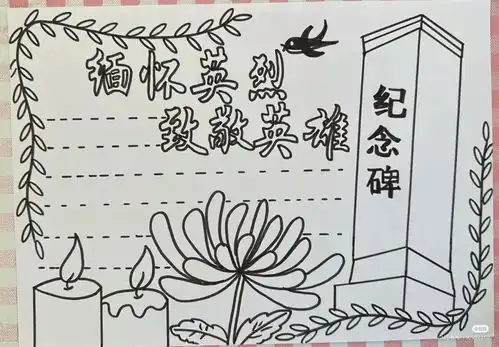 缅怀英烈
致敬英雄
纪念碑